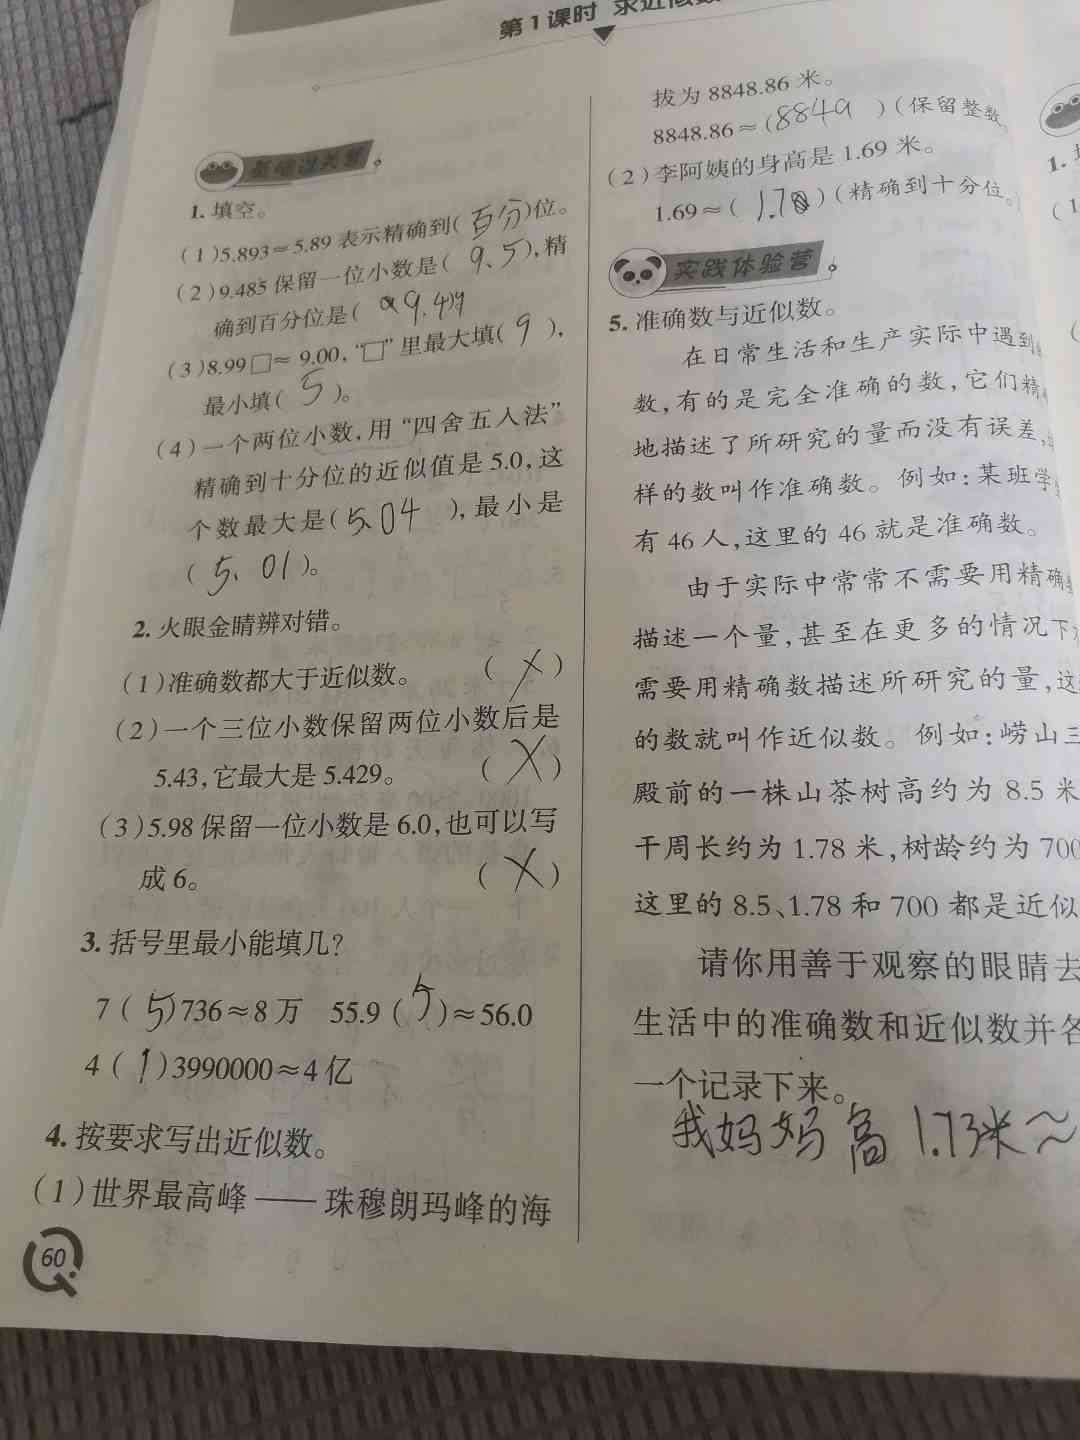 第1课时 求近似数
基础过关营。
1. 填空。
(1)5.893≈5.89 表示精确到(百分)位。
(2)9.485 保留一位小数是( 9.5 ),精
确到百分位是( 9.49
(3)8.99□≈ 9.00, “□” 里最大填( 9 ),
最小填( 5 )。
(4)一个两位小数,用 “四舍五入法”
精确到十分位的近似值是 5.0, 这
个数最大是(5.04 ),最小是
( 5.01)。
2. 火眼金睛辨对错。
(1)准确数都大于近似数。 (×)
(2)一个三位小数保留两位小数后是
5.43,它最大是 5.429。 (×)
(3)5.98 保留一位小数是 6.0,也可以写
成 6。 (×)
3. 括号里最小能填几?
7 (5)736≈8 万 55.9 (5)≈56.0
4 (1)3990000≈4 亿
4. 按要求写出近似数。
(1)世界最高峰 —— 珠穆朗玛峰的海
60
拔为 8848.86 米。
8848.86≈(8849 )(保留整数
(2)李阿姨的身高是 1.69 米。
1.69≈( 1.70)(精确到十分位。
实践体验营。
5. 准确数与近似数。
在日常生活和生产实际中遇到
数,有的是完全准确的数,它们精
地描述了所研究的量而没有误差,
样的数叫作准确数。例如:某班学
有 46 人,这里的 46 就是准确数。
由于实际中常常不需要用精确
描述一个量,甚至在更多的情况下
需要用精确数描述所研究的量,这
的数就叫作近似数。例如:崂山三
殿前的一株山茶树高约为 8.5 米
干周长约为 1.78 米,树龄约为 700
这里的 8.5、1.78 和 700 都是近似
请你用善于观察的眼睛去
生活中的准确数和近似数并各
一个记录下来。
我妈妈高1.73米≈
1.
(1